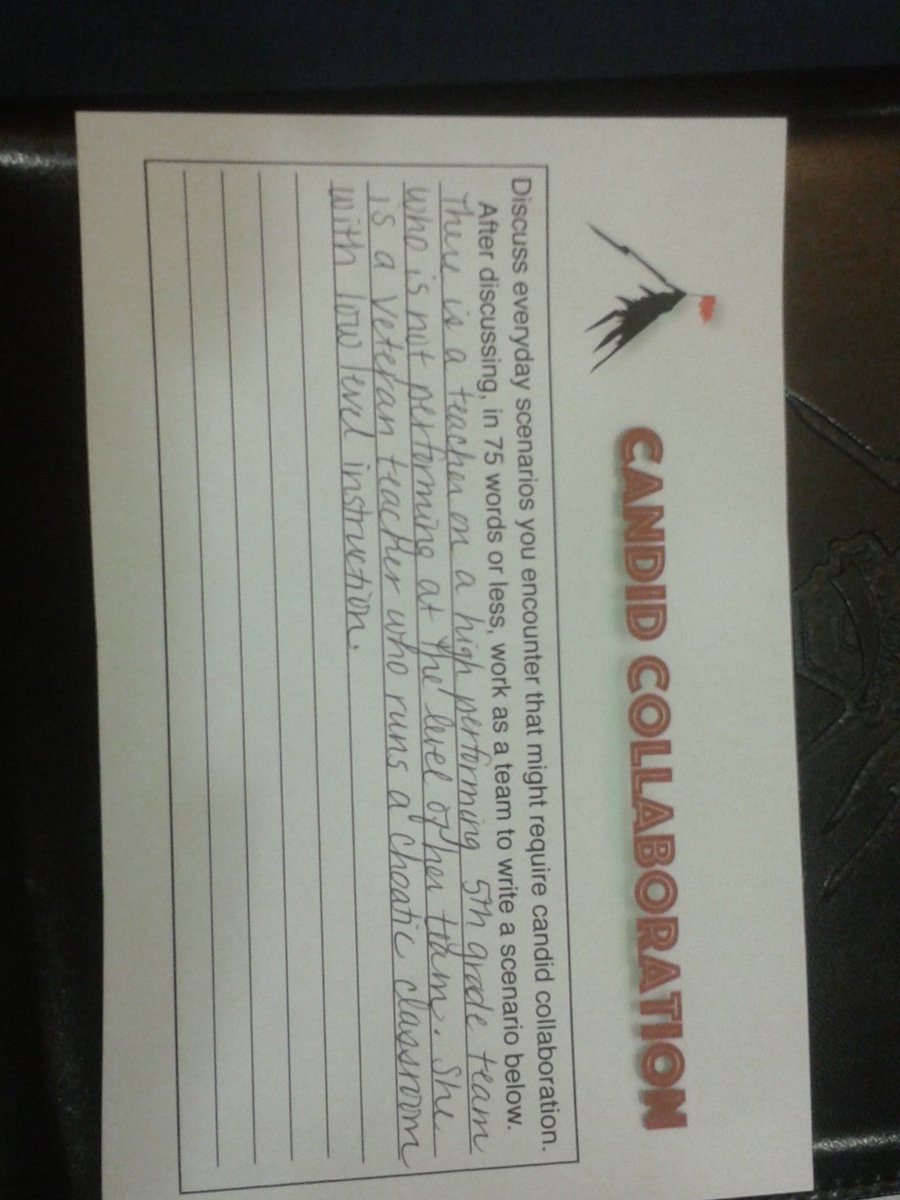 CANDID COLLABORATION
Discuss everyday scenarios you encounter that might require candid collaboration.
After discussing, in 75 words or less, work as a team to write a scenario below.
There is a teacher on a high performing 5th grade team
who is not performing at the level of her team. She
is a veteran teacher who runs a choatic classroom
with low level instruction.